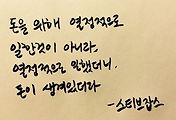 돈을 위해 열정적으로
일한것이 아니라,
열정적으로 일했더니,
돈이 생겨있더라
-스티브잡스